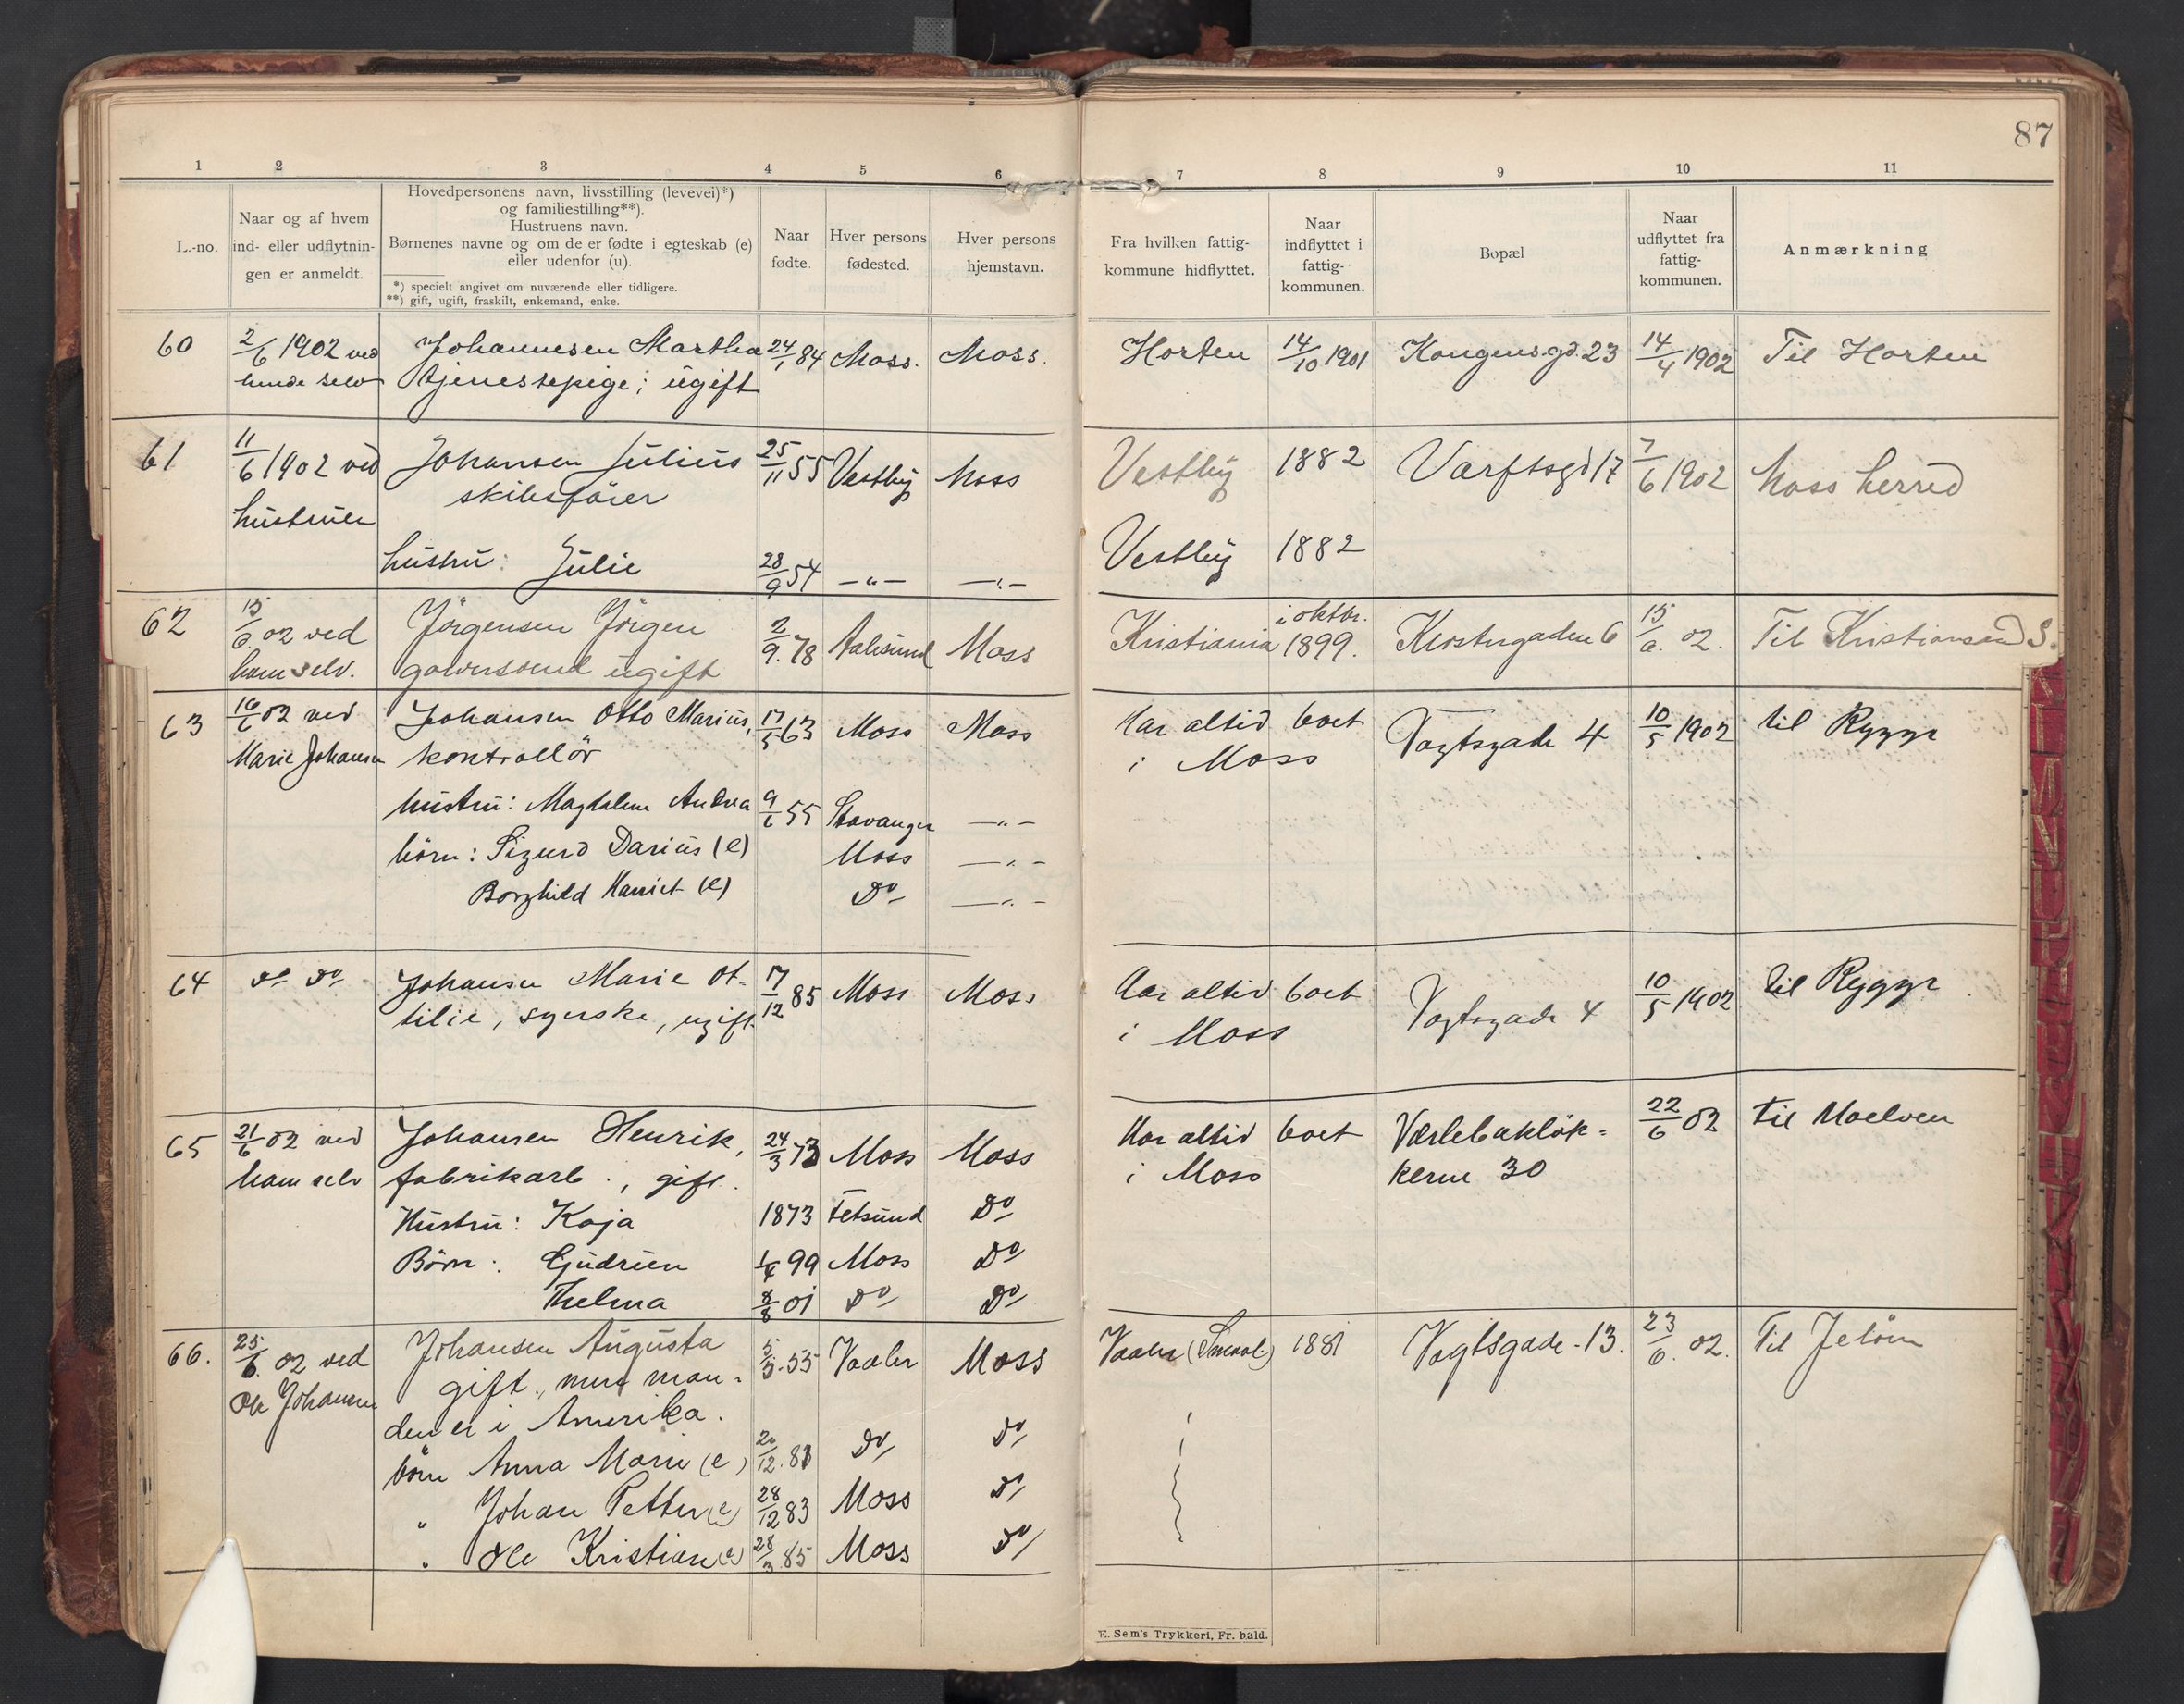 87
1 2 3 4 5 6 7 8 9 10 11
L.-no.
Naar og af hvem
ind- eller udflytnin-
gen er anmeldt.
Hovedpersonens navn, livsstilling (levevei)*)
og familiestilling**).
Hustruens navn.
Børnenes navne og om de er fødte i egteskab (e)
eller udenfor (u).
*) specielt angivet om nuværende eller tidligere.
**) gift, ugift, fraskilt, enkemand, enke.
Naar
fødte.
Hver persons
fødested.
Hver persons
hjemstavn.
Fra hvilken fattig-
kommune hidflyttet.
Naar
indflyttet i
fattig-
kommunen.
Bopæl
Naar
udflyttet fra
fattig-
kommunen.
Anmærkning
60 2/6 1902 ved Johannesen Martha 24/1 84 Moss. Moss. Horten 14/10 1901 Kongensgd. 23 14/4 1902 Til Horten
hende selv tjenestepige; ugift
61 11/6 1902 ved Johansen Julius 25/11 55 Vestby Moss Vestby 1882 Værftsgd 17 7/6 1902 Moss herred
hustruen skibsfører
hustru: Julie 28/9 54 —"— —"— Vestby 1882
62 15/6. 02 ved Jörgensen Jörgen 2/9. 78 Aalesund Moss Kristiania i oktbr. 1899. Klostergaden 6 15/6. 02. Til Kristiansand S.
ham selv. ugift
63 16/6 02 ved Johansen Otto Marius, 17/5 63 Moss Moss Har altid boet Vogtsgade 4 10/5 1902 til Rygge
Marie Johansen kontrollör i Moss
hustru: Magdalene Andrea 9/6 55 Stavanger —"—
börn: Sigurd Darius (e) Moss —"—
Borghild Harriet (e) Do —"—
64 do do Johansen Marie Ot- 17/12 85 Moss Moss Har altid boet Vogtsgade 4 10/5 1902 til Rygge
tilie, syerske, ugift. i Moss
65 21/6 02 ved Johansen Henrik, 24/3 73 Moss Moss Har altid boet Værlebaklök- 22/6 02 til Moelven
ham selv fabrikarb., gift. i Moss kerne 30
Hustru: Kaja 1873 Fetsund Do
Börn: Gudrun 1/4 99 Moss Do
Thelma 8/8 01 Do Do
66. 25/6. 02 ved Johansen Augusta 5/5. 55 Vaaler Moss Vaaler (Smaal.) 1881 Vogtsgade - 13. 23/6. 02. Til Jelöen
Ole Johansen gift., men man-
den er i Amerika.
börn Anna Marie (e) 20/12. 81 Do Do
" Johan Petter (e) 28/12 83 Moss Do
" Ole Kristian (e) 28/3. 85 Moss Do
E. Sem's Trykkeri, Fr. hald.